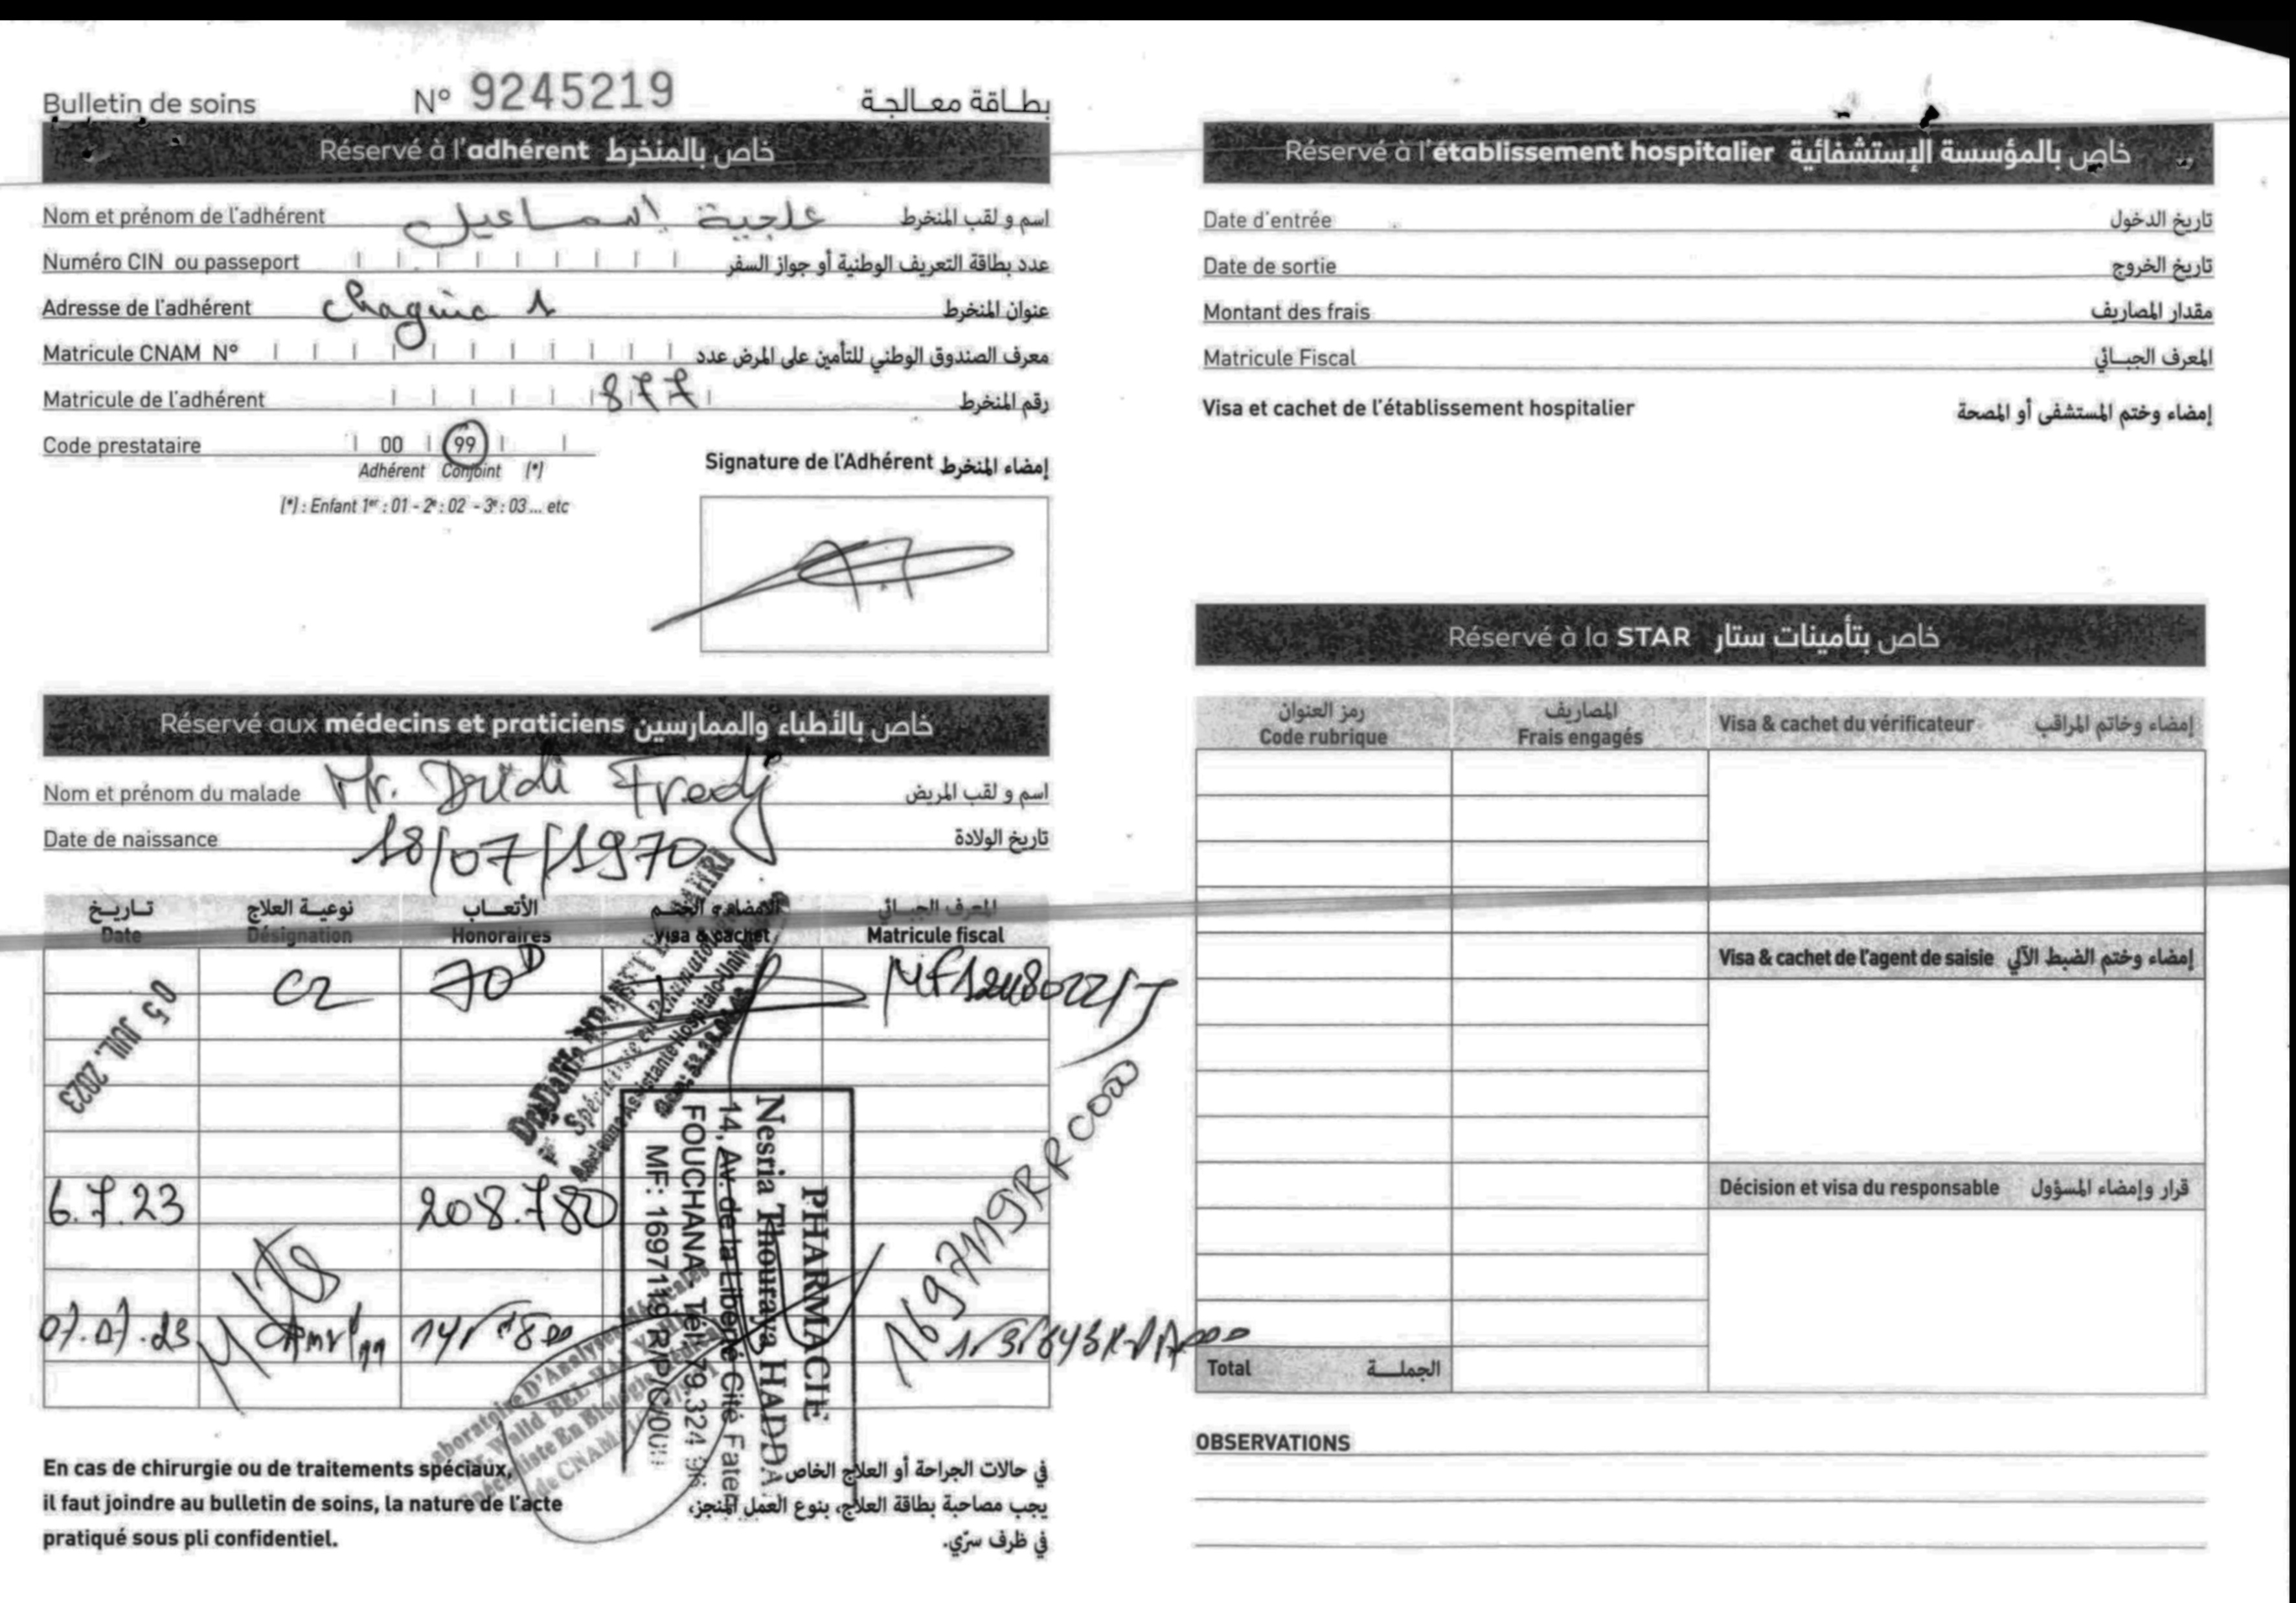 Bulletin de soins N° 9245219 بطاقة معالجة
Réservé à l'adhérent خاص بالمنخرط
Nom et prénom de l'adhérent علجية إسماعيل اسم و لقب المنخرط
Numéro CIN ou passeport عدد بطاقة التعريف الوطنية أو جواز السفر
Adresse de l'adhérent chaguia 1 عنوان المنخرط
Matricule CNAM N° معرف الصندوق الوطني للتأمين على المرض عدد
Matricule de l'adhérent 877 رقم المنخرط
Code prestataire 00 99
Adhérent Conjoint (*)
(*) : Enfant 1er : 01 - 2e : 02 - 3e : 03 ... etc
Signature de l'Adhérent إمضاء المنخرط
Réservé aux médecins et praticiens خاص بالأطباء والممارسين
Nom et prénom du malade Mr. Dridi Fredj اسم و لقب المريض
Date de naissance 18/07/1970 تاريخ الولادة
تاريخ نوعية العلاج الأتعاب الإمضاء و الختم المعرف الجبائي
Date Désignation Honoraires Visa & cachet Matricule fiscal
05 JUIL. 2023 C2 70D
6.7.23 208.780
07.07.23
PHARMACIE
Nesria Thouraya HADDA
14, Av. de la Liberté Cité Faten
FOUCHANA Tél: 79.324
Laboratoire D'Analyses Médicales
Dr. Walid BEL HAJ
Spécialiste En Biologie
Code CNAM
En cas de chirurgie ou de traitements spéciaux,
il faut joindre au bulletin de soins, la nature de l'acte
pratiqué sous pli confidentiel.
في حالات الجراحة أو العلاج الخاص
يجب مصاحبة بطاقة العلاج، بنوع العمل المنجز،
في ظرف سرّي.
Réservé à l'établissement hospitalier خاص بالمؤسسة الإستشفائية
Date d'entrée تاريخ الدخول
Date de sortie تاريخ الخروج
Montant des frais مقدار المصاريف
Matricule Fiscal المعرف الجبائي
Visa et cachet de l'établissement hospitalier إمضاء وختم المستشفى أو المصحة
Réservé à la STAR خاص بتأمينات ستار
رمز العنوان المصاريف
Code rubrique Frais engagés Visa & cachet du vérificateur إمضاء وخاتم المراقب
Visa & cachet de l'agent de saisie إمضاء وختم الضبط الآلي
Décision et visa du responsable قرار وإمضاء المسؤول
Total الجملة
OBSERVATIONS